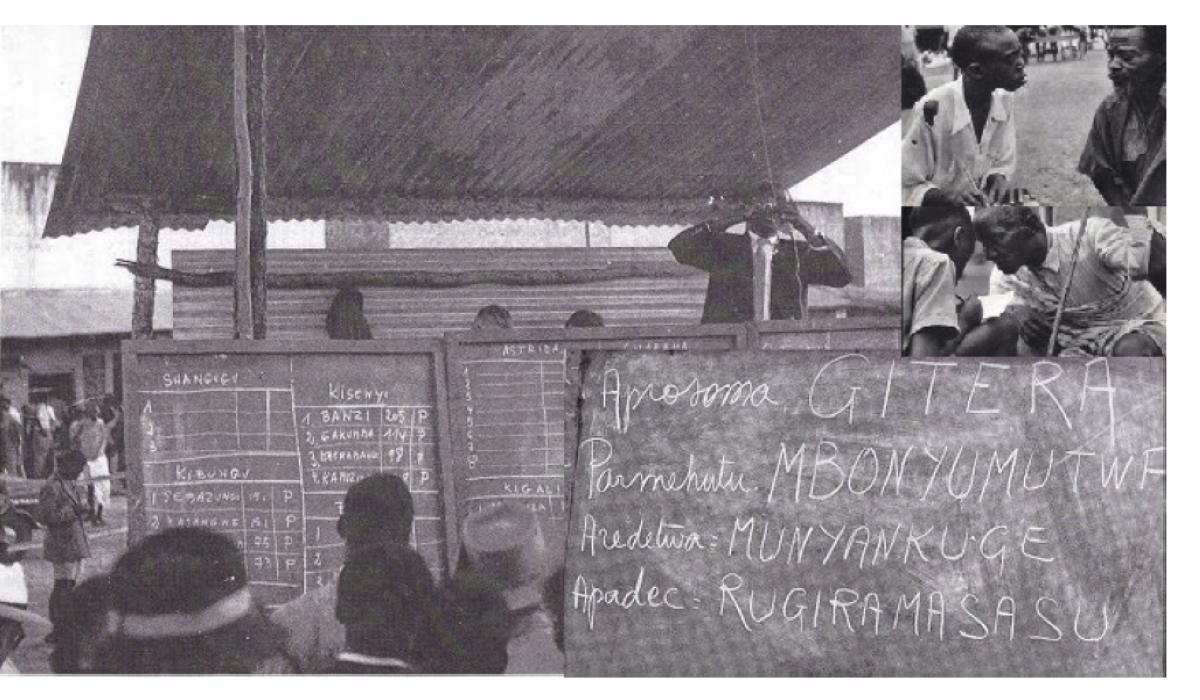 SHANGUGU
1
2
3
KIBUNGU
1 SEBAZUNGU 191 P
2 191 P
75 P
73 P
Kisenyi
1. BANZI 205 P
2. GAKUMBA 114 P
3. 98 P
4. P
1
2
ASTRIDA
1
2
3
4
5
6
7
8
KIGALI
Aprosoma GITERA
Parmehutu MBONYUMUTWA
Aredetwa = MUNYANKUGE
Apadec = RUGIRAMASASU